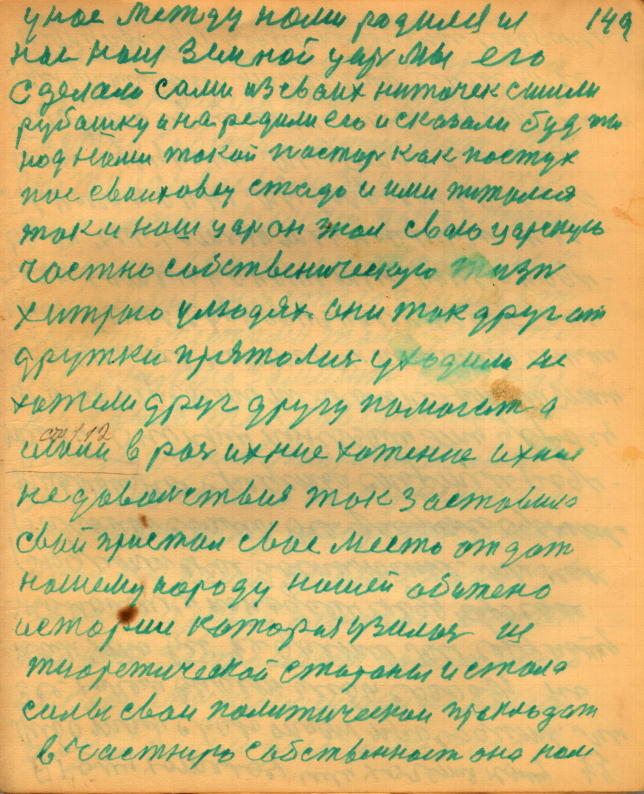 у нас между нами родился и 149
нас наш земной царь мы его
сделали сами из своих ниточек сшили
рубашку и на редили его и сказали будь ты
над нами такой пастор как пастух
пас своих овец стадо и ими питался
так и наш цар он знал свою царскую
частно собственическую жизн
хитраю улюдях они так друг от
дружки прятолися уходили не
хотели друг другу помогат а
стр 1.12
шли в раз ихние хотение ихнее
не довольствия так заставило
свой пристол свое место отдат
нашему народу нашей обижено
истории котороя взялас из
тиоретической стораны и стала
силы свои политически прокладат
в частную собственност она нам